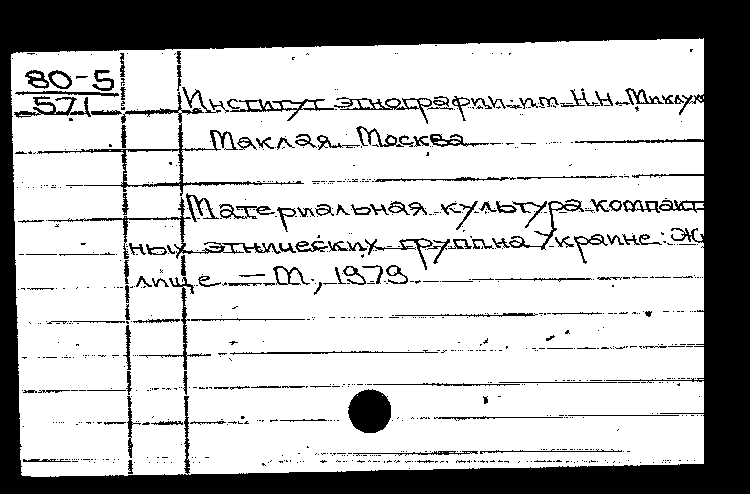 80-5
571
Институт этнографии им. Н.Н. Миклух
Маклая. Москва
Материальная культура компакт
ных этнических групп на Украине: Жи
лище. — М., 1979